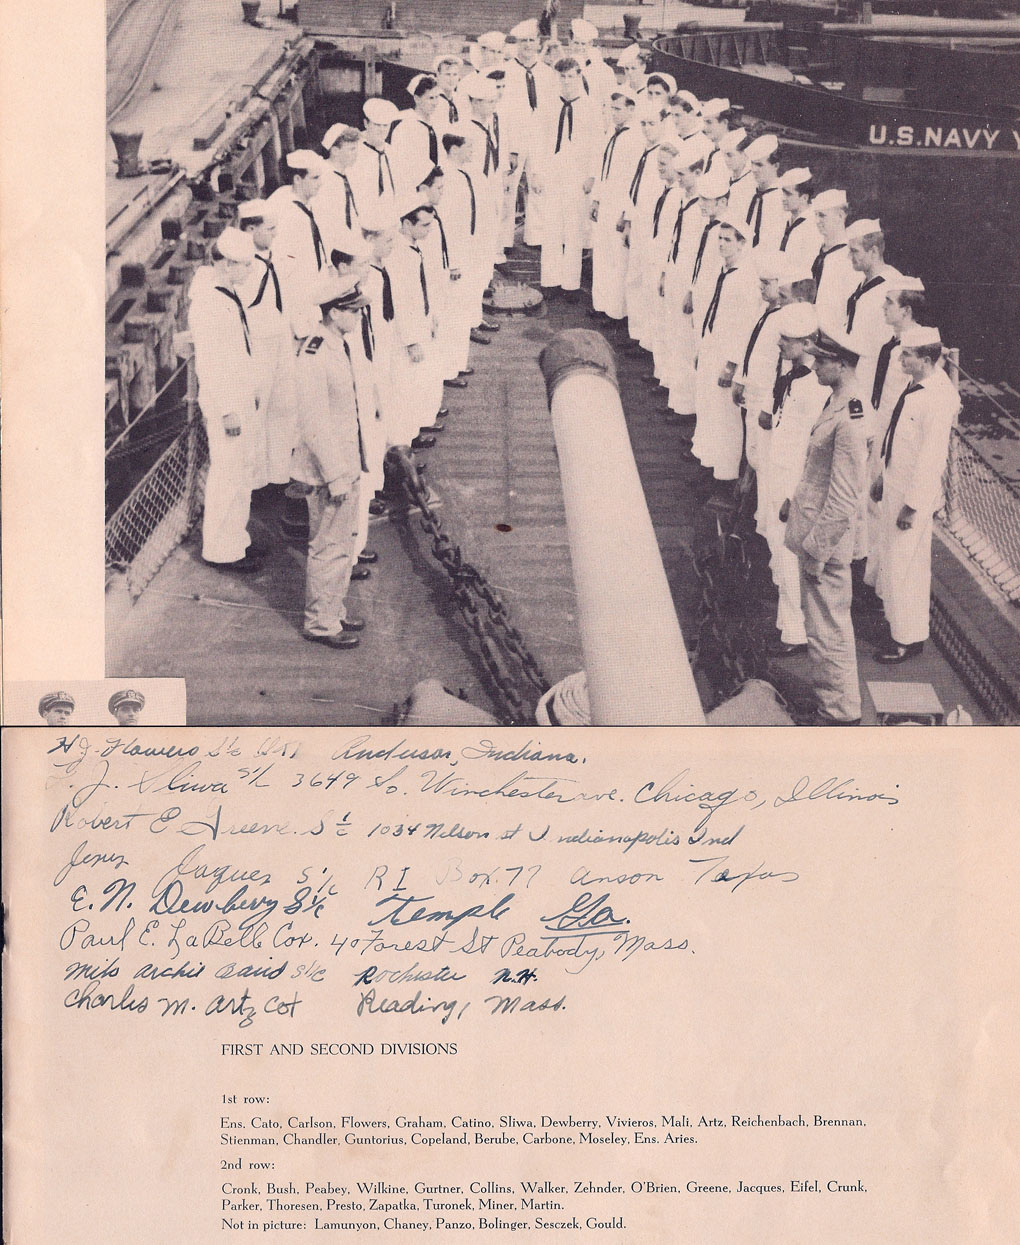 U.S. NAVY Y
H. J. Flowers S1/c Anderson, Indiana.
J. Sliwa S1/c 3649 So. Winchester ave. Chicago, Illinois
Robert E. Greene. S 1/c 1034 Nelson st Indianapolis Ind
Jerry Jaques S1/c R I Box 77 Anson Texas
E. N. Dewberry S1/c Temple Ga.
Paul E. LaBelle Cox. 40 Forest St Peabody, Mass.
archie S1/c Rochester N.H.
Charles M. Artz Cox Reading, Mass.
FIRST AND SECOND DIVISIONS
1st row:
Ens. Cato, Carlson, Flowers, Graham, Catino, Sliwa, Dewberry, Vivieros, Mali, Artz, Reichenbach, Brennan,
Stienman, Chandler, Guntorius, Copeland, Berube, Carbone, Moseley, Ens. Aries.
2nd row:
Cronk, Bush, Peabey, Wilkine, Gurtner, Collins, Walker, Zehnder, O'Brien, Greene, Jacques, Eifel, Crunk,
Parker, Thoresen, Presto, Zapatka, Turonek, Miner, Martin.
Not in picture: Lamunyon, Chaney, Panzo, Bolinger, Sesczek, Gould.